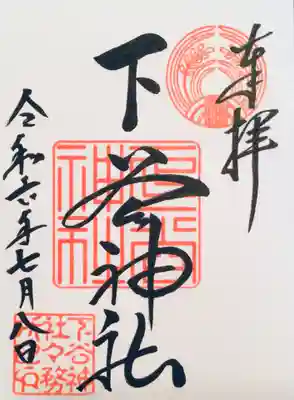 奉拝
下谷神社
令和六年七月八日
下谷神
社々務
所之印